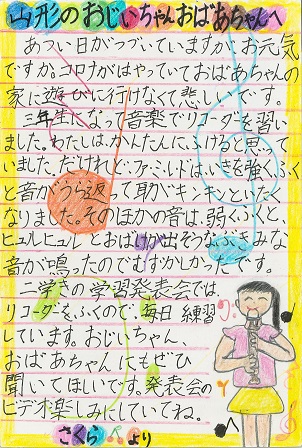 山形のおじいちゃんおばあちゃんへ
あつい日がつづいていますが、お元気
ですか。コロナがはやっていておばあちゃんの
家に遊びに行けなくて悲しいです。
三年生になって音楽でリコーダーを習い
ました。わたしは、かんたんに、ふけると思って
いました。だけれど、ファ、ミ、レ、ドは、いきを強くふく
と音がうら返って耳がキンキンといたく
なりました。そのほかの音は、弱くふくと、
ヒュルヒュルとおばけが出そうなふきみな
音が鳴ったのでむずかしかったです。
二学きの学習発表会では、
リコーダーをふくので、毎日練習
しています。おじいちゃん、
おばあちゃんにもぜひ
聞いてほしいです。発表会の
ビデオ楽しみにしていてね。
さくらより